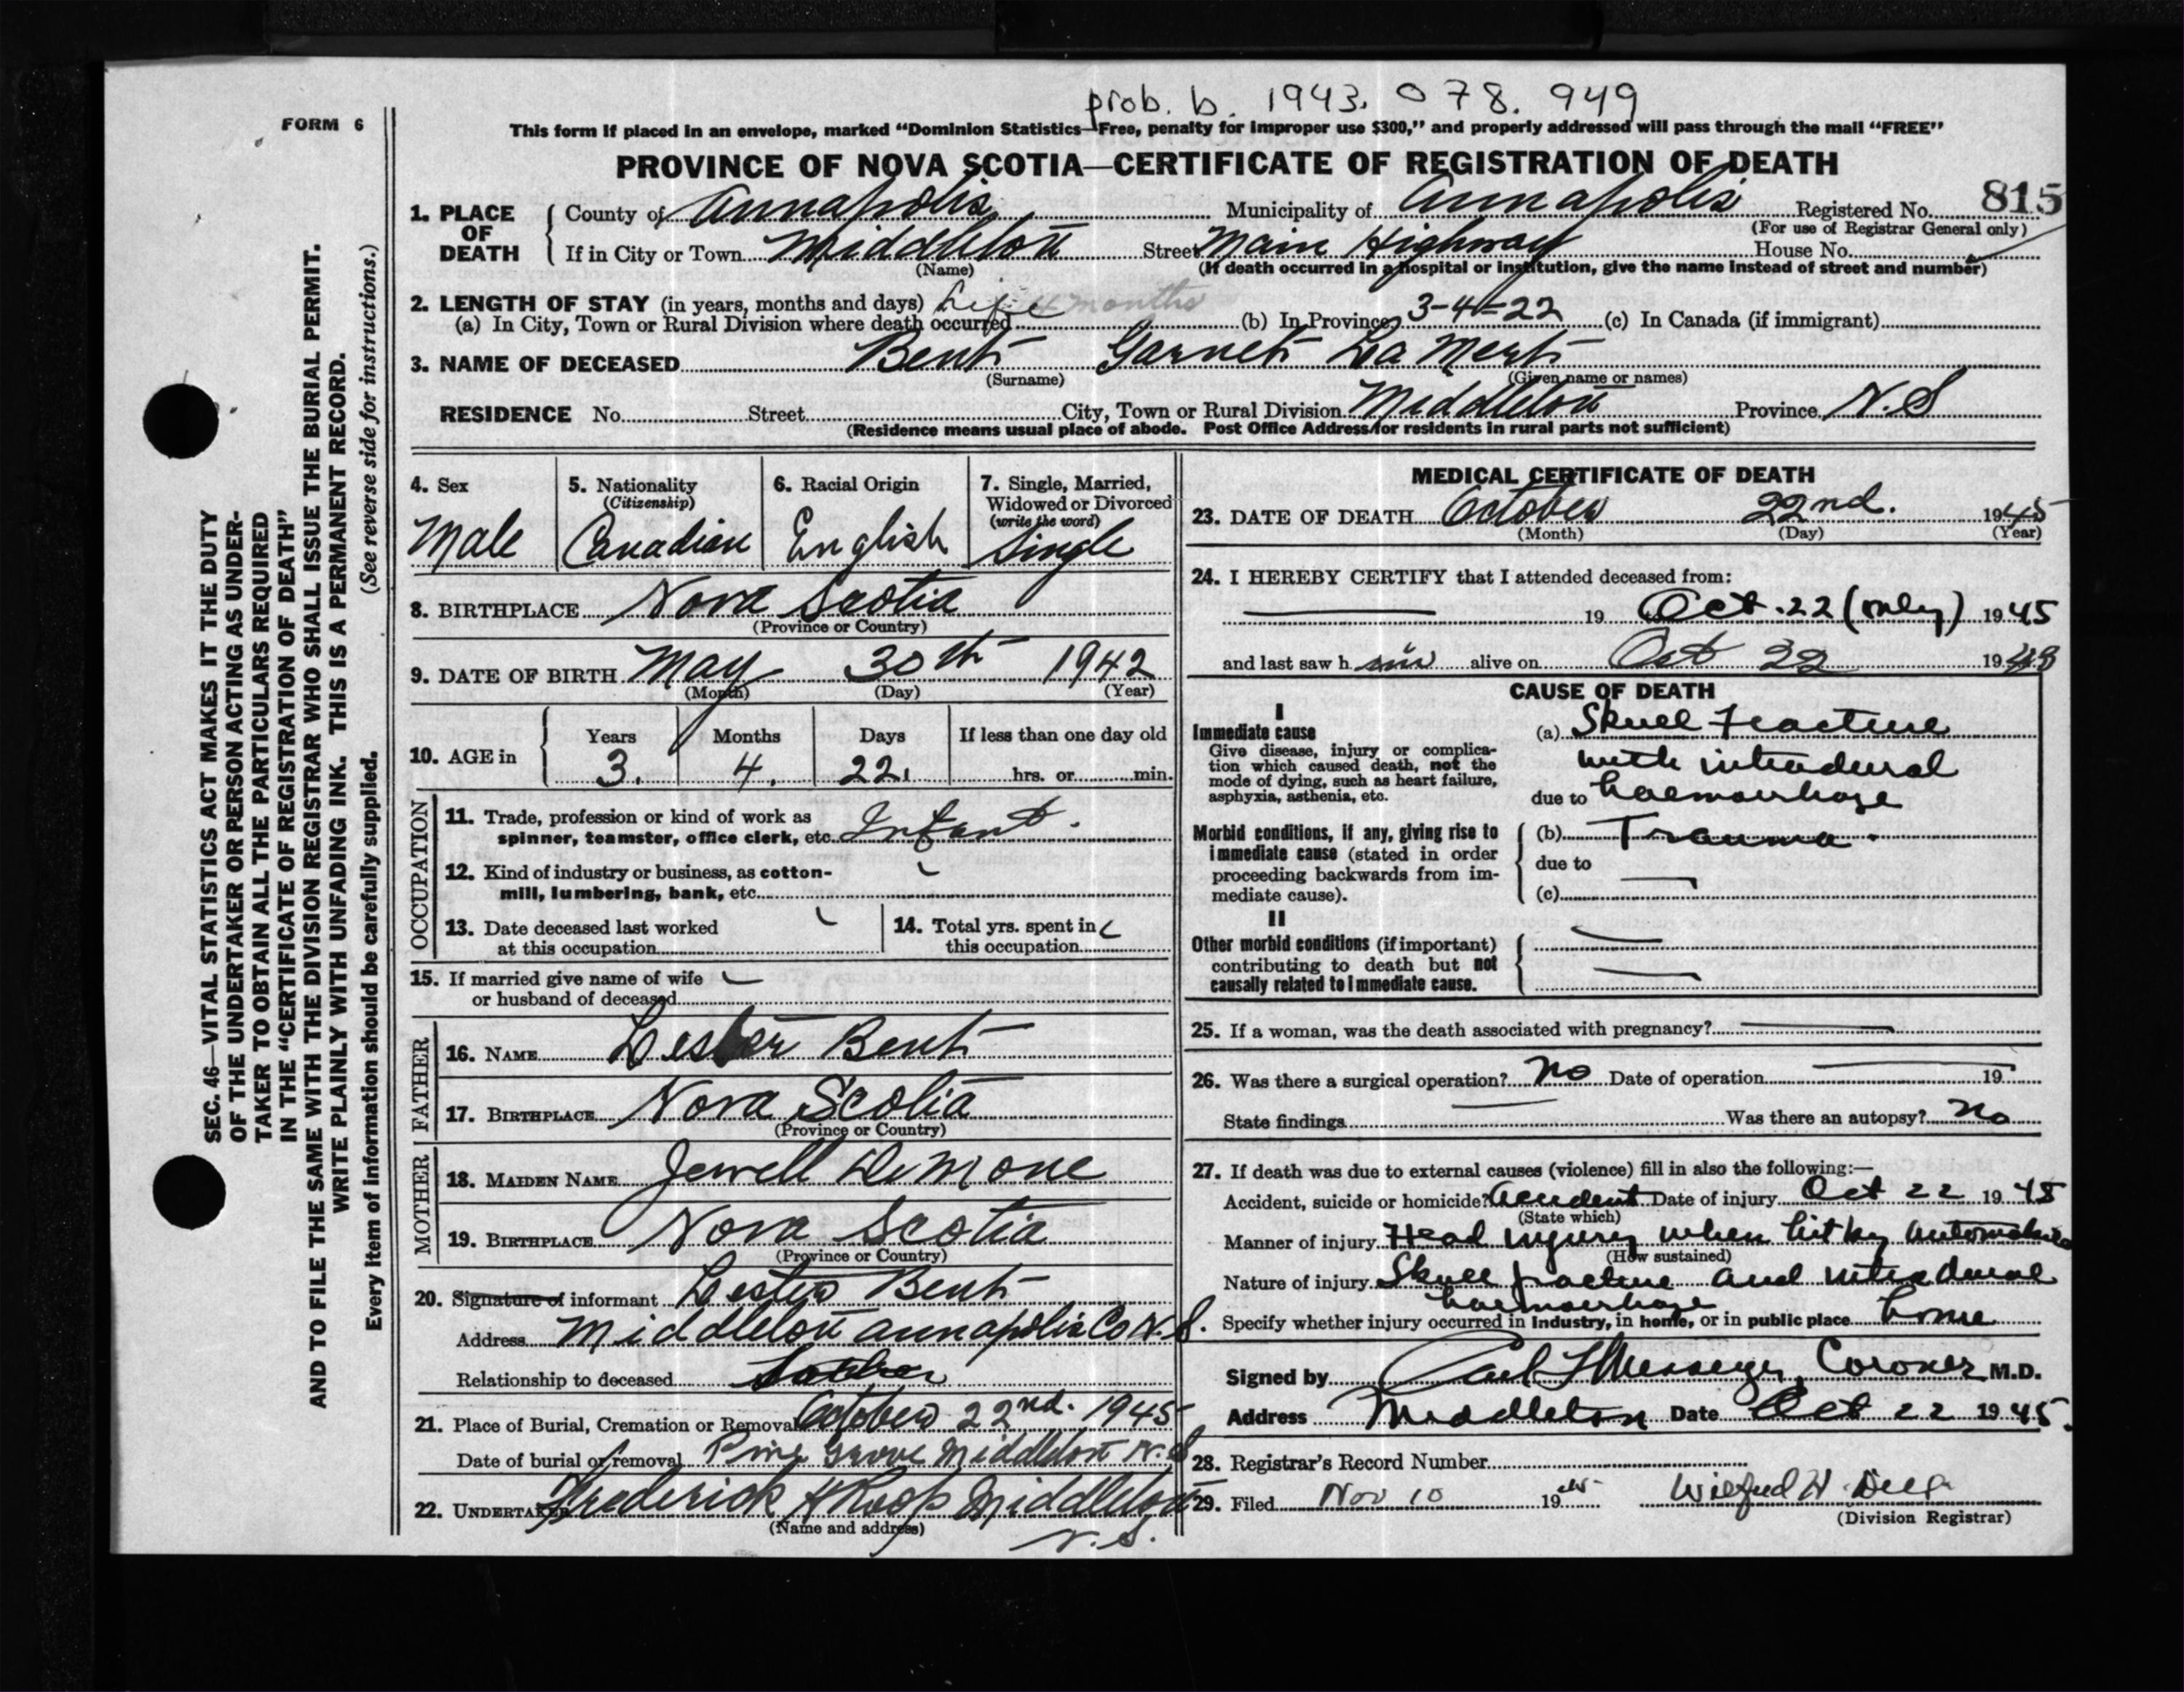 prob. b. 1943. 078. 949
FORM 6
This form if placed in an envelope, marked "Dominion Statistics—Free, penalty for improper use $300," and properly addressed will pass through the mail "FREE"
PROVINCE OF NOVA SCOTIA—CERTIFICATE OF REGISTRATION OF DEATH
SEC. 46—VITAL STATISTICS ACT MAKES IT THE DUTY
OF THE UNDERTAKER OR PERSON ACTING AS UNDER-
TAKER TO OBTAIN ALL THE PARTICULARS REQUIRED
IN THE "CERTIFICATE OF REGISTRATION OF DEATH"
AND TO FILE THE SAME WITH THE DIVISION REGISTRAR WHO SHALL ISSUE THE BURIAL PERMIT.
WRITE PLAINLY WITH UNFADING INK. THIS IS A PERMANENT RECORD.
(See reverse side for instructions.)
Every item of information should be carefully supplied.
1. PLACE OF DEATH
County of Annapolis Municipality of Annapolis Registered No. 815
(For use of Registrar General only)
If in City or Town Middleton Street Main Highway House No.
(Name) (If death occurred in a hospital or institution, give the name instead of street and number)
2. LENGTH OF STAY (in years, months and days) Life 4 months
(a) In City, Town or Rural Division where death occurred (b) In Province 3-4-22 (c) In Canada (if immigrant)
3. NAME OF DECEASED Bent Garnet La Mert
(Surname) (Given name or names)
RESIDENCE No. Street City, Town or Rural Division Middleton Province N.S
(Residence means usual place of abode. Post Office Address for residents in rural parts not sufficient)
4. Sex
Male
5. Nationality
(Citizenship)
Canadian
6. Racial Origin
English
7. Single, Married,
Widowed or Divorced
(write the word)
Single
8. BIRTHPLACE Nova Scotia
(Province or Country)
9. DATE OF BIRTH May 30th 1942
(Month) (Day) (Year)
10. AGE in Years Months Days If less than one day old
3. 4. 22. hrs. or min.
OCCUPATION
11. Trade, profession or kind of work as
spinner, teamster, office clerk, etc. Infant.
12. Kind of industry or business, as cotton-
mill, lumbering, bank, etc.
13. Date deceased last worked
at this occupation
14. Total yrs. spent in
this occupation
15. If married give name of wife
or husband of deceased
FATHER
16. NAME Lester Bent
17. BIRTHPLACE Nova Scotia
(Province or Country)
MOTHER
18. MAIDEN NAME Jewell DeMone
19. BIRTHPLACE Nova Scotia
(Province or Country)
20. Signature of informant Lester Bent
Address Middleton Annapolis Co N.S.
Relationship to deceased
21. Place of Burial, Cremation or Removal October 22nd. 1945
Date of burial or removal Pine Grove Middleton N.S
22. UNDERTAKER Frederick H Roop Middleton
(Name and address) N.S.
MEDICAL CERTIFICATE OF DEATH
23. DATE OF DEATH October 22nd. 1945
(Month) (Day) (Year)
24. I HEREBY CERTIFY that I attended deceased from:
19 to Oct. 22 (only) 1945
and last saw h im alive on Oct 22 19
CAUSE OF DEATH
I
Immediate cause
Give disease, injury or complica-
tion which caused death, not the
mode of dying, such as heart failure,
asphyxia, asthenia, etc.
(a) Skull Fracture
with intradural
due to haemorrhage
Morbid conditions, if any, giving rise to
immediate cause (stated in order
proceeding backwards from im-
mediate cause).
(b) Trauma.
due to
(c)
II
Other morbid conditions (if important)
contributing to death but not
causally related to immediate cause.
25. If a woman, was the death associated with pregnancy?
26. Was there a surgical operation? No Date of operation 19
State findings Was there an autopsy? No
27. If death was due to external causes (violence) fill in also the following:—
Accident, suicide or homicide? Accident Date of injury Oct 22 1945
(State which)
Manner of injury Head injury when hit by automobile
(How sustained)
Nature of injury Skull fracture and intradural
haemorrhage
Specify whether injury occurred in industry, in home, or in public place home
Signed by Carl Messenger, Coroner M.D.
Address Middleton Date Oct 22 1945.
28. Registrar's Record Number
29. Filed Nov 10 1945 Wilfred H
(Division Registrar)